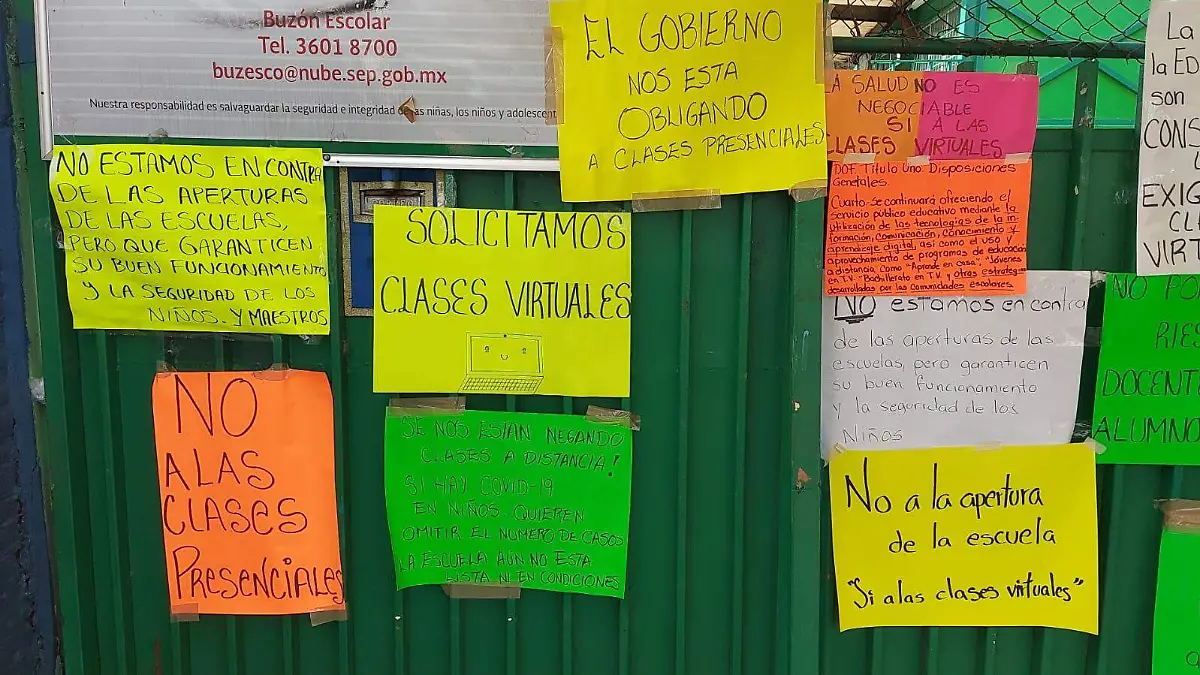 Buzón Escolar
Tel. 3601 8700
buzesco@nube.sep.gob.mx
Nuestra responsabilidad es salvaguardar la seguridad e integridad de las niñas, los niños y adolescent
EL GOBIERNO
NOS ESTA
OBLIGANDO
A CLASES PRESENCIALES
A SALUD NO ES
NEGOCIABLE
SI A LAS
CLASES VIRTUALES
DOF. Título Uno. Disposiciones
Generales.
Cuarto-Se continuará ofreciendo el
servicio público educativo mediante la
utilización de las tecnologías de la in-
formación, comunicación, conocimiento y
aprendizaje digital, así como el uso y
aprovechamiento de programas de educación
a distancia como "Aprende en casa", "Jóvenes
en TV." "Bachillerato en T.V. y otras estrategias
desarrolladas por las comunidades escolares.
La
la ED
son
CONS
EXIG
CL
VIRT
NO ESTAMOS EN CONTRA
DE LAS APERTURAS
DE LAS ESCUELAS,
PERO QUE GARANTICEN
SU BUEN FUNCIONAMIENTO
Y LA SEGURIDAD DE LOS
NIÑOS. Y MAESTROS
SOLICITAMOS
CLASES VIRTUALES
NO estamos en contra
de las aperturas de las
escuelas, pero garanticen
su buen funcionamiento
y la seguridad de los
Niños
NO PO
RIES
DOCENT
ALUMNO
NO
A LAS
CLASES
PRESENCIALES
SE NOS ESTAN NEGANDO
CLASES A DISTANCIA!
SI HAY COVID-19
EN NIÑOS QUIEREN
OMITIR EL NUMERO DE CASOS
LA ESCUELA AÚN NO ESTA
LISTA NI EN CONDICIONES
No a la apertura
de la escuela
"Si a las clases virtuales"